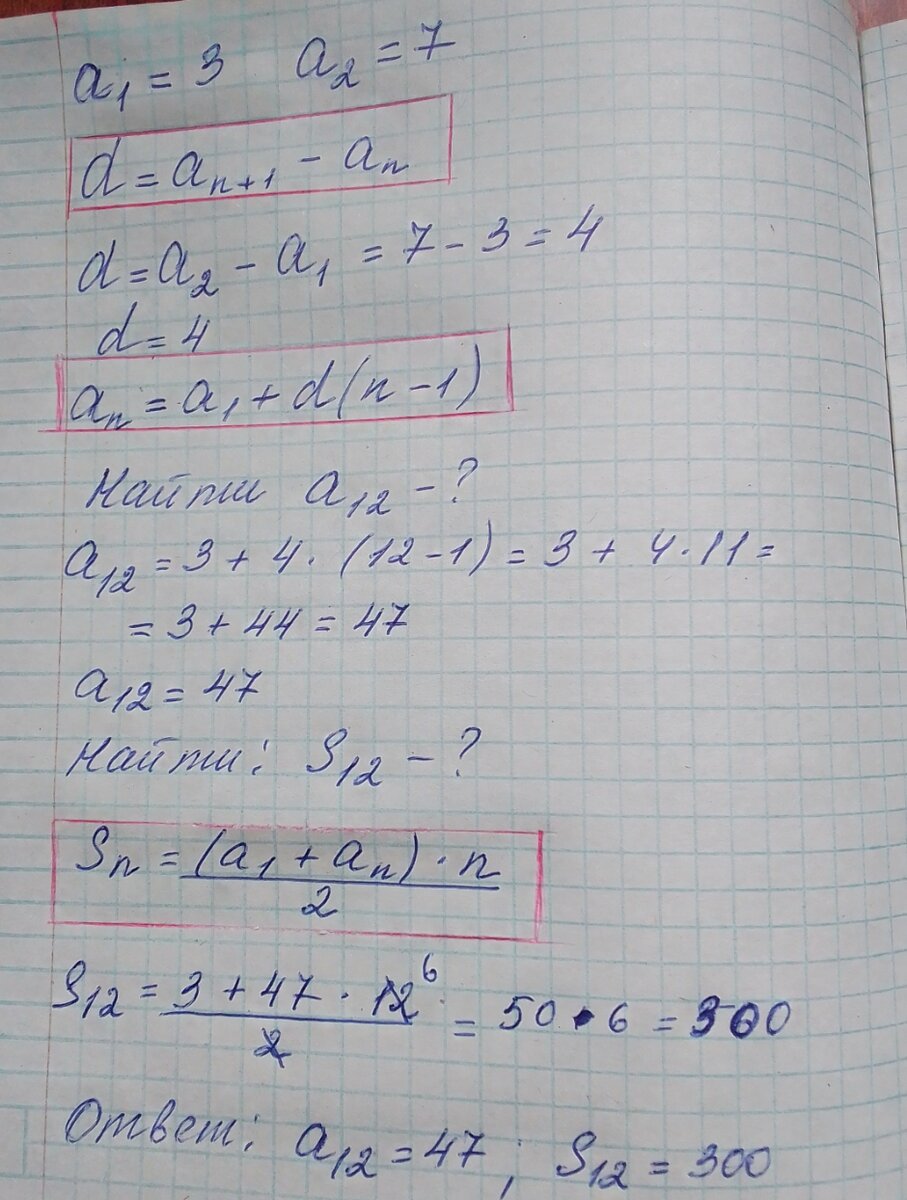 a₁ = 3 a₂ = 7
d = aₙ₊₁ - aₙ
d = a₂ - a₁ = 7 - 3 = 4
d = 4
aₙ = a₁ + d(n - 1)
Найти a₁₂ - ?
a₁₂ = 3 + 4 · (12 - 1) = 3 + 4 · 11 =
= 3 + 44 = 47
a₁₂ = 47
Найти: S₁₂ - ?
Sₙ = (a₁ + aₙ) · n / 2
S₁₂ = 3 + 47 · 12 ⁶ / 2 = 50 · 6 = 300
Ответ: a₁₂ = 47 ; S₁₂ = 300